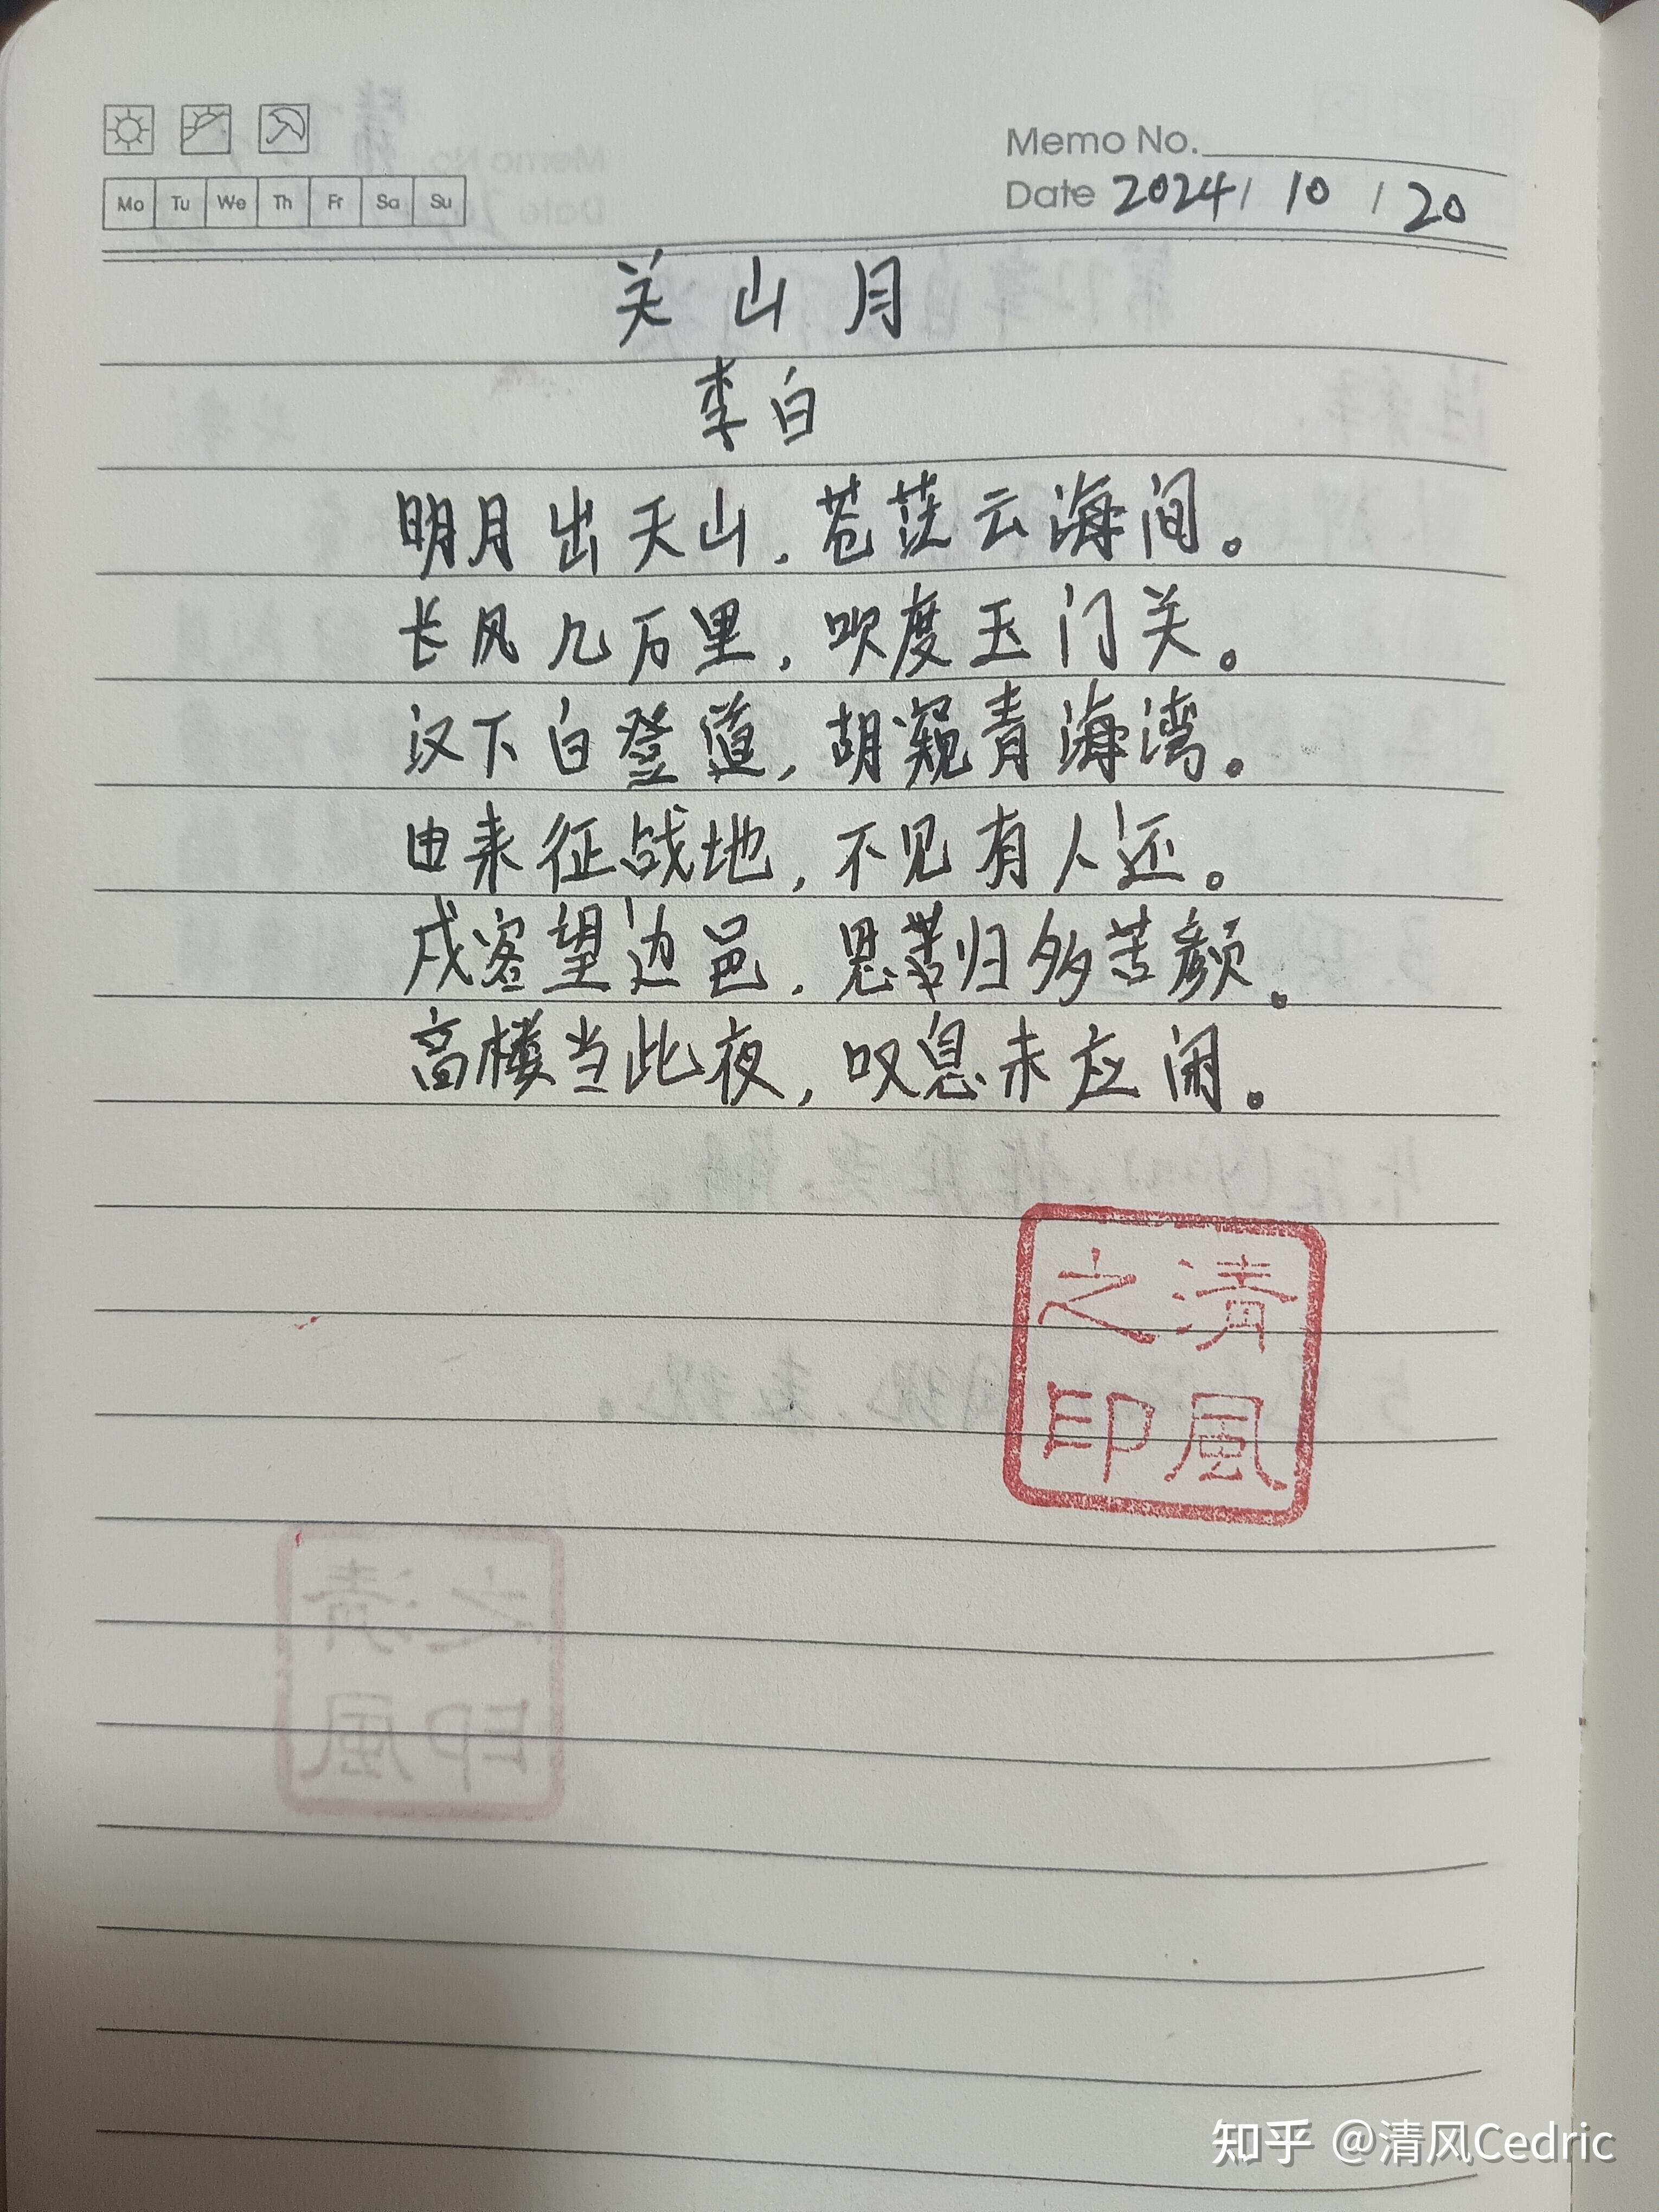 Memo No.
Mo Tu We Th Fr Sa Su
Date 2024/ 10 / 20
关山月
李白
明月出天山，苍茫云海间。
长风几万里，吹度玉门关。
汉下白登道，胡窥青海湾。
由来征战地，不见有人还。
戍客望边邑，思归多苦颜。
高楼当此夜，叹息未应闲。
清風之印
知乎 @清风Cedric